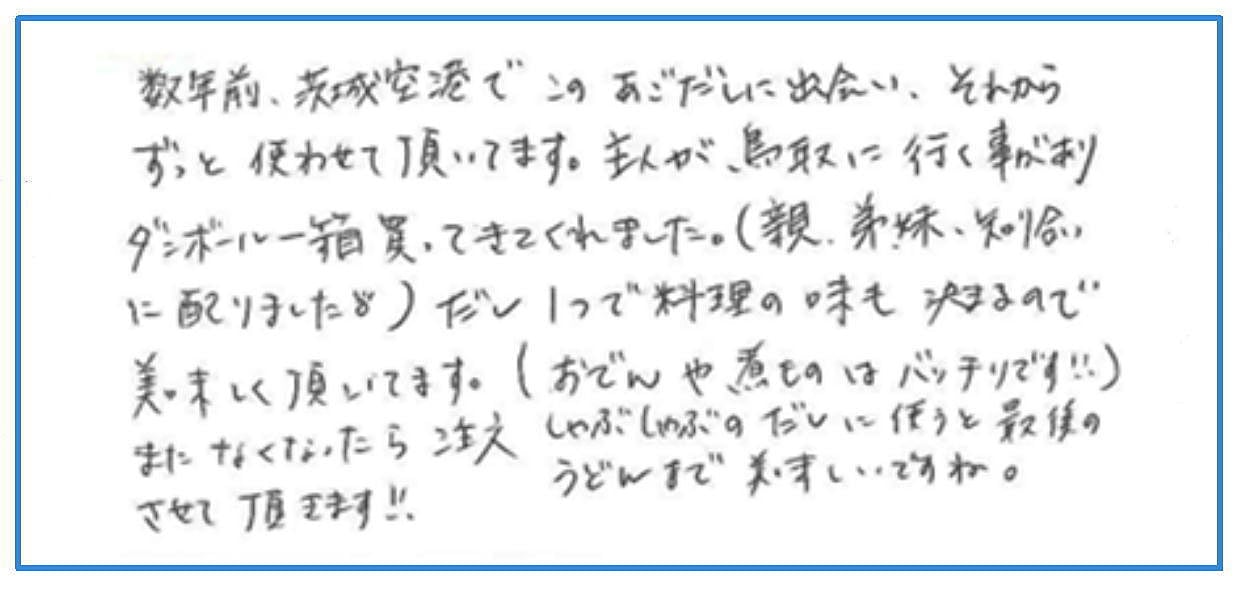 数年前、茨城空港でこのあごだしに出会い、それから
ずっと使わせて頂いてます。主人が、鳥取に行く事があり
ダンボール一箱買ってきてくれました。(親、弟妹、知り合い
に配りました)だし1つで料理の味も決まるので
美味しく頂いてます。(おでんや煮ものはバッチリです!!)
しゃぶしゃぶのだしに使うと最後の
うどんまで美味しいですね。
またなくなったら注文
させて頂きます!!